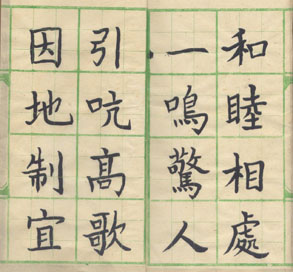 和睦相處
一鳴驚人
引吭高歌
因地制宜